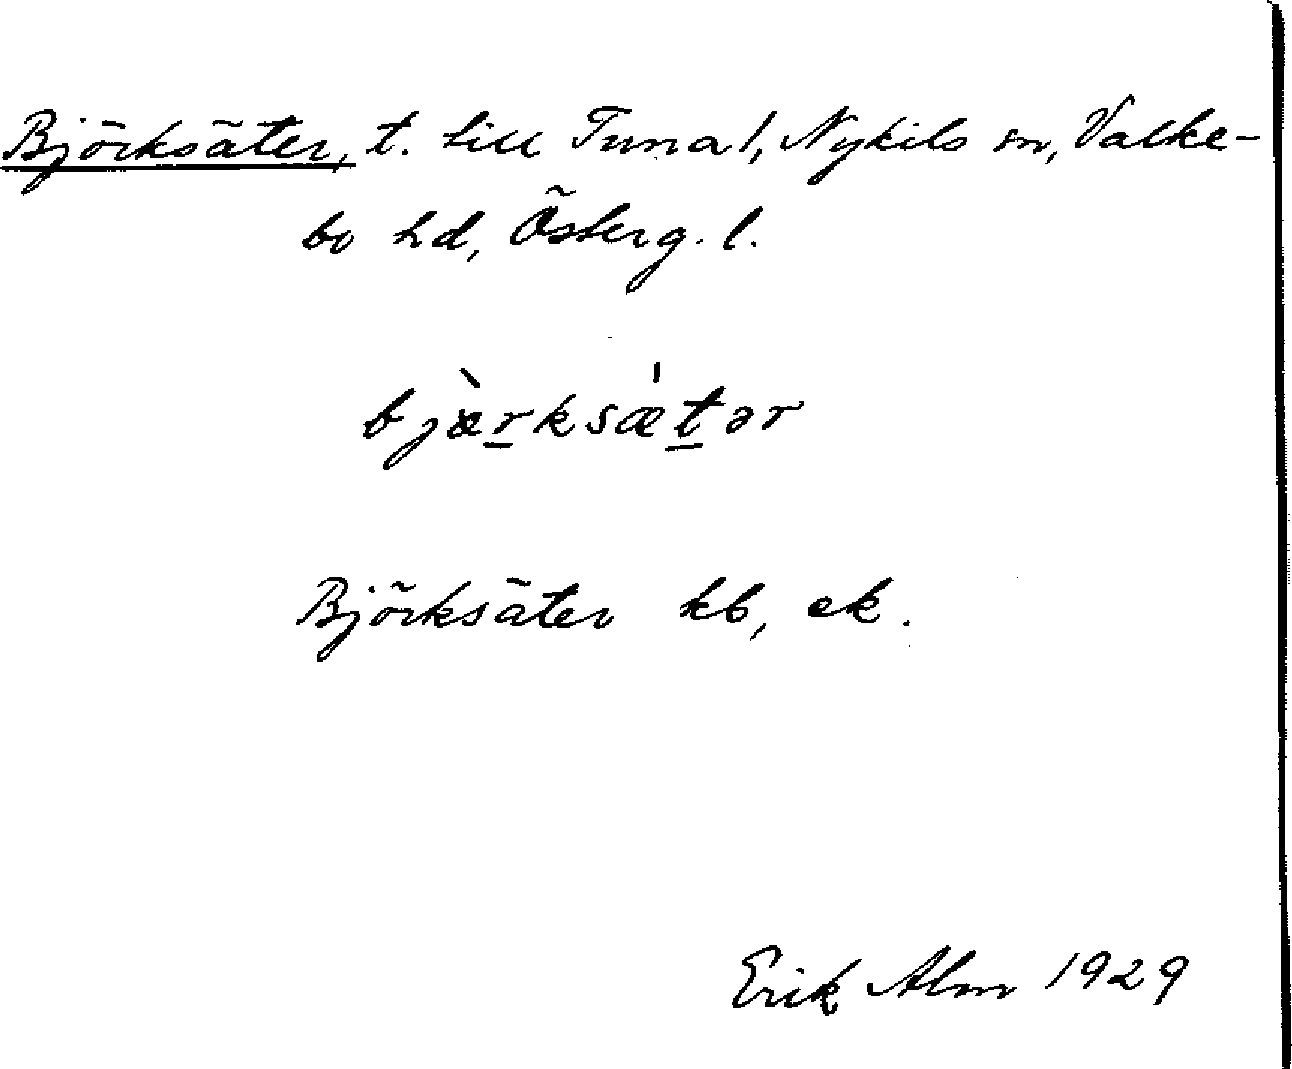 Björksäter, t. till Tuna 1, Nykils sn, Valke-
bo hd, Österg. l.
bjæ̀rksæ̍tər
Björksäter kb, ek.
Erik Alm 1929